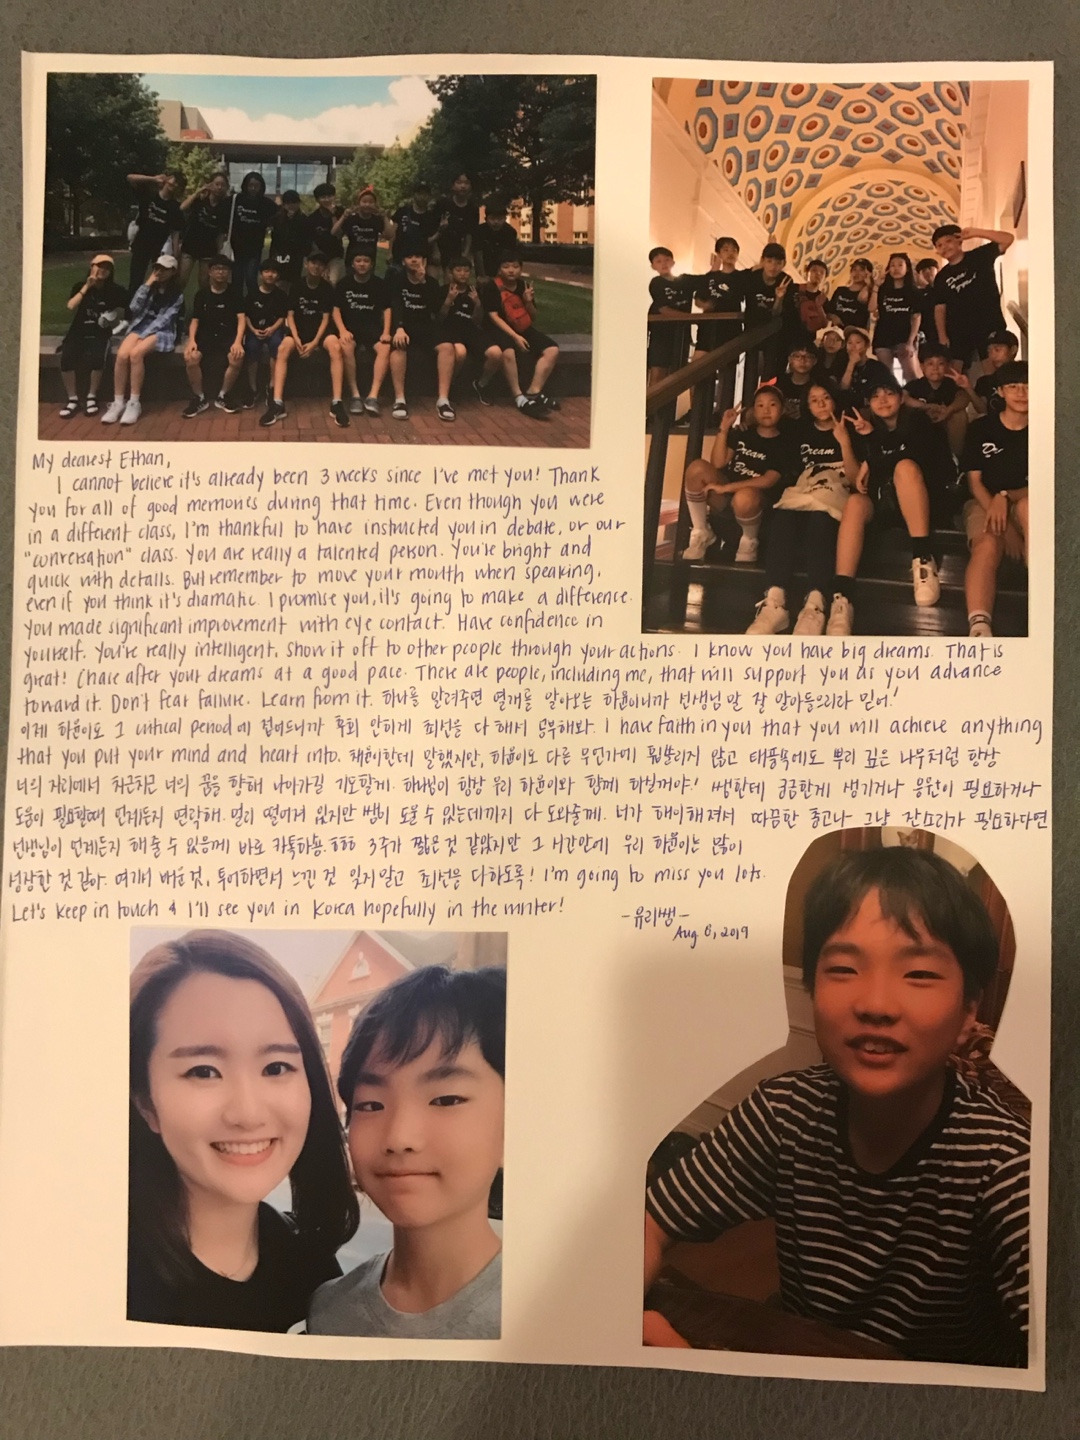 My dearest Ethan,
I cannot believe it's already been 3 weeks since I've met you! Thank
you for all of good memories during that time. Even though you were
in a different class, I'm thankful to have instructed you in debate, or our
"conversation" class. You are really a talented person. You're bright and
quick with details. But remember to move your mouth when speaking,
even if you think it's dramatic. I promise you, it's going to make a difference.
You made significant improvement with eye contact. Have confidence in
yourself. You're really intelligent, show it off to other people through your actions. I know you have big dreams. That is
great! Chase after your dreams at a good pace. There are people, including me, that will support you as you advance
toward it. Don't fear failure. Learn from it. 하나를 알려주면 열개를 알아오는 하윤이니까 선생님 말 잘 알아들으리라 믿어!
이제 하윤이도 그 critical period에 접어드니까 후회 안하게 최선을 다 해서 공부해봐. I have faith in you that you will achieve anything
that you put your mind and heart into. 채윤이한테 말했지만, 하윤이도 다른 무언가에 휩쓸리지 않고 태풍속에도 뿌리 깊은 나무처럼 항상
너의 자리에서 차근차근 너의 꿈을 향해 나아가길 기도할게. 하나님이 항상 우리 하윤이와 함께 하실거야! 쌤한테 궁금한게 생기거나 응원이 필요하거나
도움이 필요할때 언제든지 연락해. 멀리 떨어져 있지만 쌤이 도울 수 있는데까지 다 도와줄게. 너가 해이해져서 따끔한 충고나 그냥 잔소리가 필요하다면
선생님이 언제든지 해줄 수 있음께 바로 카톡하용. ㅎㅎㅎ 3주가 짧은 것 같았지만 그 시간안에 우리 하윤이는 많이
성장한 것 같아. 여기서 배운것, 투어하면서 느낀 것 잊지말고 최선을 다하도록! I'm going to miss you lots.
Let's keep in touch & I'll see you in Korea hopefully in the winter!
-유리쌤-
Aug 6, 2019
Dream
&
Beyond